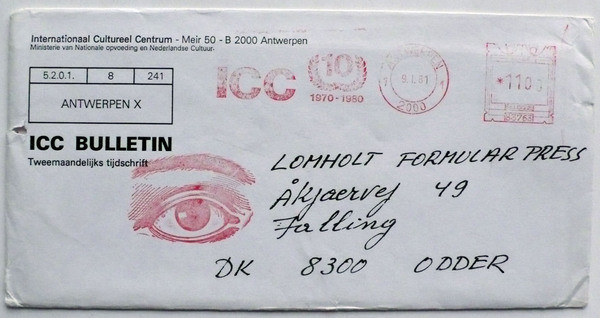 Internationaal Cultureel Centrum - Meir 50 - B 2000 Antwerpen
Ministerie van Nationale opvoeding en Nederlandse Cultuur.
5.2.0.1. 8 241
ANTWERPEN X
ICC BULLETIN
Tweemaandelijks tijdschrift
ICC 10
1970-1980
ANTWERPEN
9.1.81
2000
LOMHOLT FORMULAR PRESS
Åkjaervej 49
Falling
DK 8300 ODDER